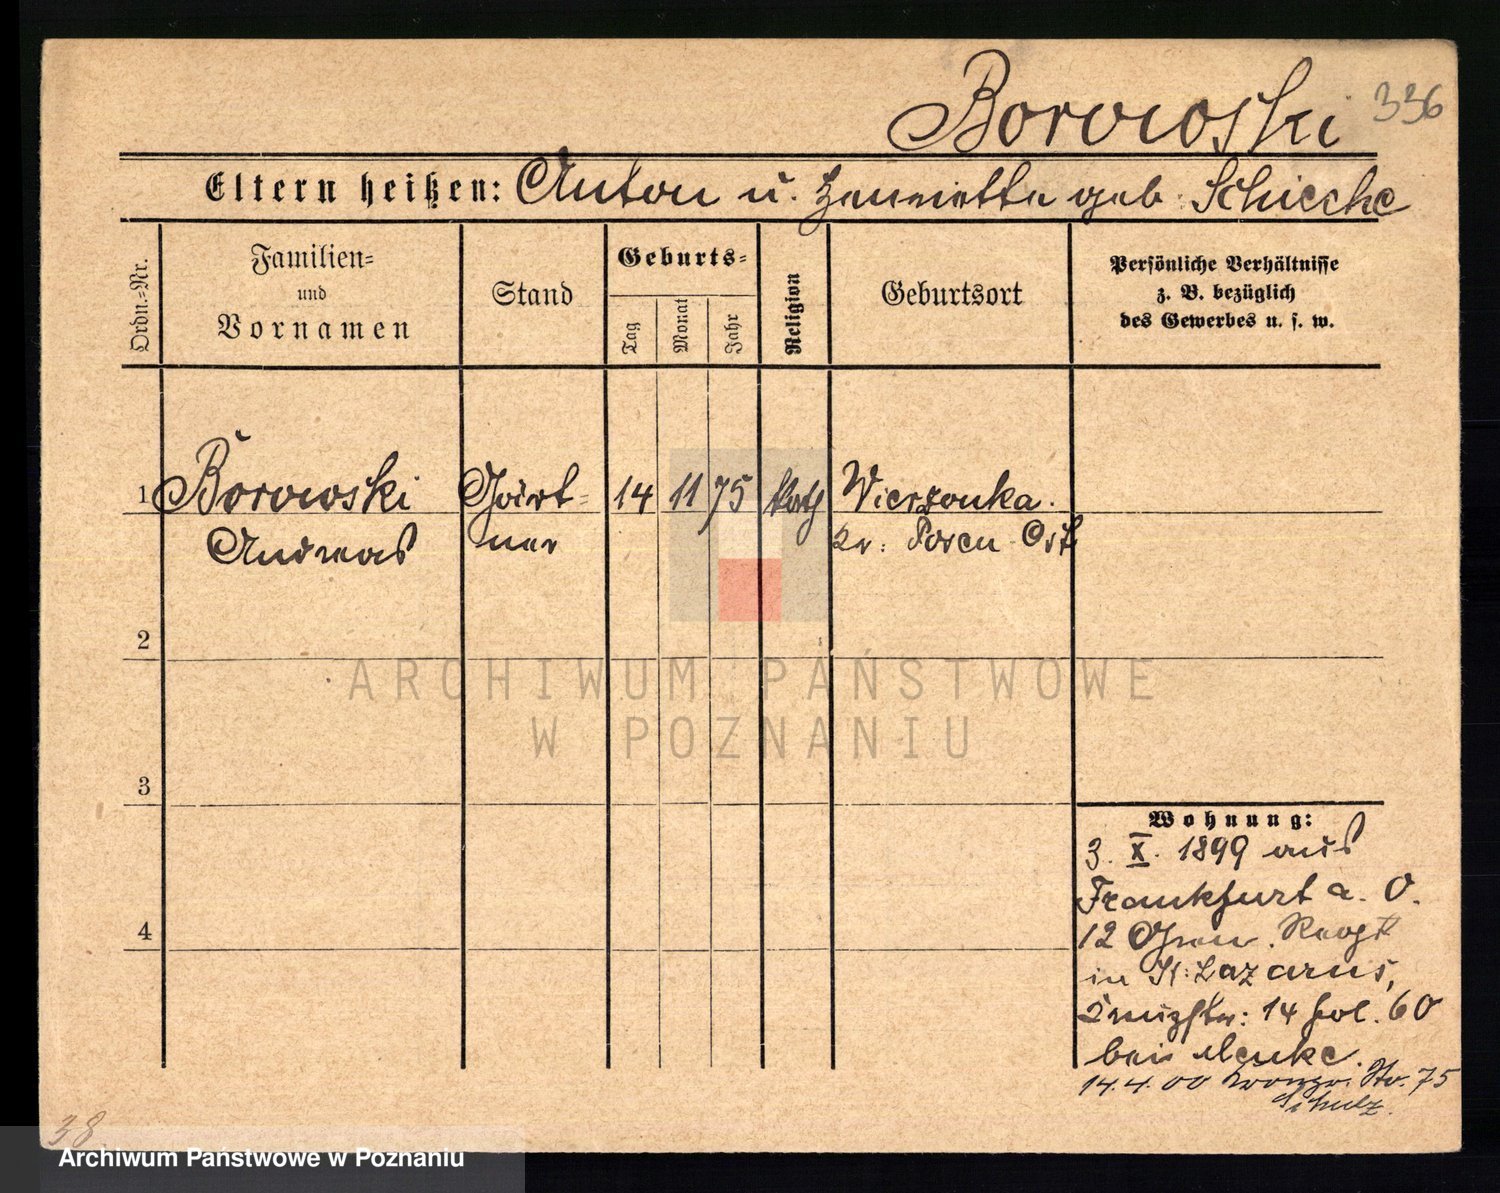 Borowski 336
Eltern heißen: Anton u. Henriette geb. Schicche
Ordn.-Nr.
Familien-
und
Vornamen
Stand
Geburts-
Tag
Monat
Jahr
Religion
Geburtsort
Persönliche Verhältnisse
z. B. bezüglich
des Gewerbes u. s. w.
1 Borowski Gärt- 14 11 75 kath Wierzonka.
Andreas ner Kr: Posen Ost
2
3
4
Wohnung:
3. X. 1899 aus
Frankfurt a. O.
12 Gren.
in St: Lazarus,
14 pol. 60
bei
14.4.00 Str. 75
Schulz.
38
ARCHIWUM PAŃSTWOWE
W POZNANIU
Archiwum Państwowe w Poznaniu